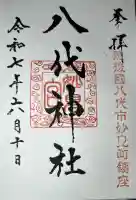 奉拝
肥後國八代市妙見町鎮座
八代神社
令和七年六月十日